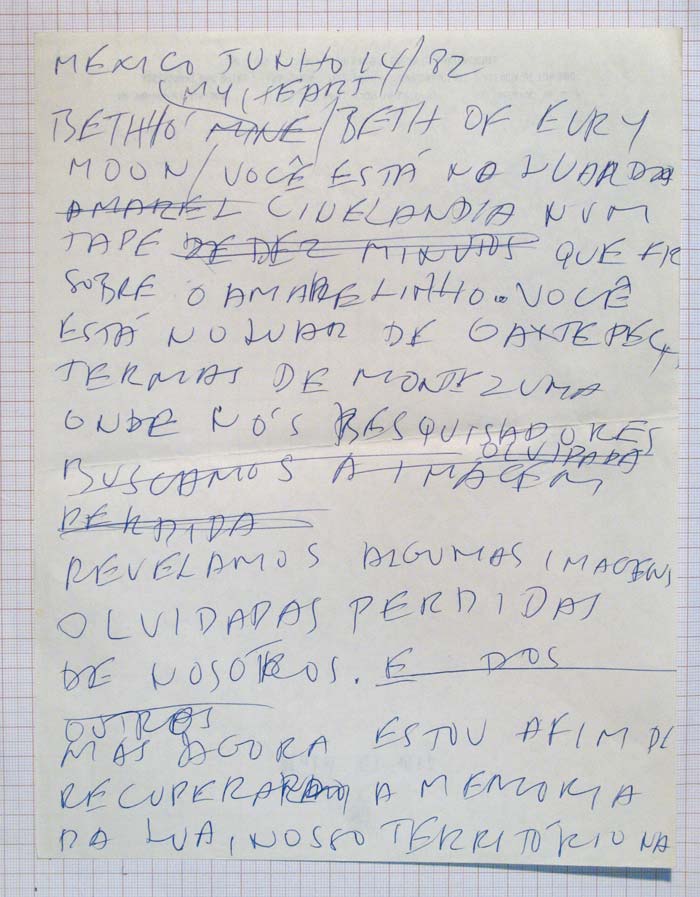 MEXICO JUNHO 14/82
MY, HEART/
BETHHÔ MINE / BETH OF EURY
MOON / VOCÊ ESTÁ NA LUA DA
AMAREL CINELANDIA NUM
TAPE DE DEZ MINUTOS QUE FIZ
SOBRE O AMARELINHO. VOCÊ
ESTÁ NO LUAR DE OAXTEPEC,
TERMAS DE MONTEZUMA
ONDE NÓS PESQUISADORES
OLVIDADA
BUSCAMOS A IMAGEM
PERDIDA
REVELAMOS ALGUMAS IMAGENS
OLVIDADAS PERDIDAS
DE NOSOTROS. E DOS
OUTROS
MAS AGORA ESTOU AFIM DE
RECUPERAR A MEMORIA
DA LUA, NOSSO TERRITÓRIO NA